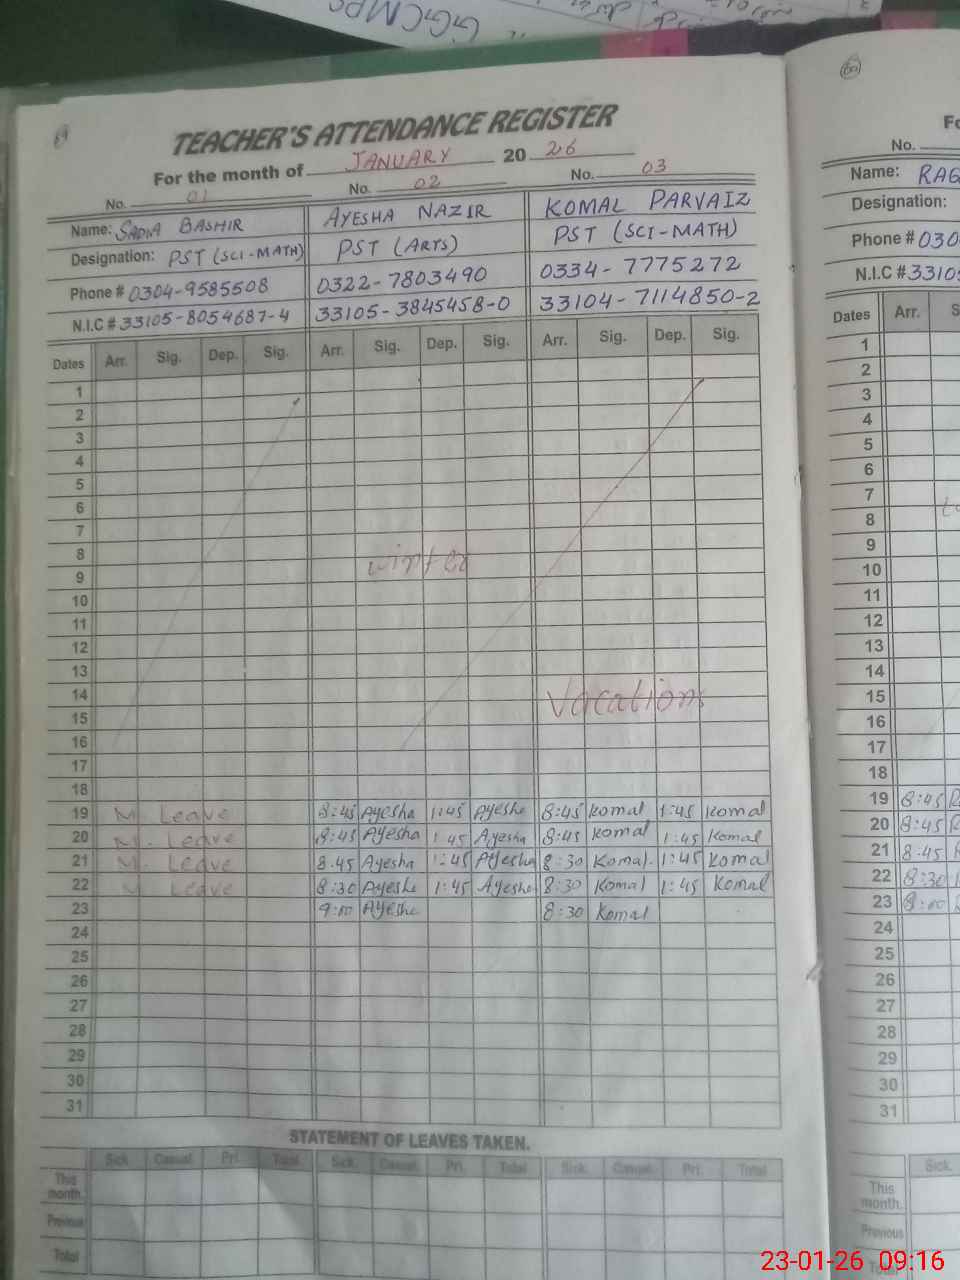 GGCMPS
TEACHER'S ATTENDANCE REGISTER
For the month of JANUARY 20 26
No. 01 No. 02 No. 03
Name: SADIA BASHIR AYESHA NAZIR KOMAL PARVAIZ
Designation: PST (SCI-MATH) PST (ARTS) PST (SCI-MATH)
Phone # 0304-9585508 0322-7803490 0334-7775272
N.I.C # 33105-8054687-4 33105-3845458-0 33104-7114850-2
Dates Arr. Sig. Dep. Sig. Arr. Sig. Dep. Sig. Arr. Sig. Dep. Sig.
1
2
3
4
5
6
7
8
winter
9
10
11
12
13
14
Vacations
15
16
17
18
19 M. Leave 8:45 Ayesha 1:45 Ayesha 8:45 Komal 1:45 Komal
20 M. Leave 8:45 Ayesha 1:45 Ayesha 8:45 Komal 1:45 Komal
21 M. Leave 8:45 Ayesha 1:45 Ayesha 8:30 Komal 1:45 Komal
22 M Leave 8:30 Ayesha 1:45 Ayesha 8:30 Komal 1:45 Komal
23 9:00 Ayesha 8:30 Komal
24
25
26
27
28
29
30
31
STATEMENT OF LEAVES TAKEN.
Sick. Casual. Pri. Total. Sick. Casual. Pri. Total Sick. Casual. Pri. Total
This month.
Previous
Total
No.
Name: RAG
Designation:
Phone # 030
N.I.C # 33105
Dates Arr.
1
2
3
4
5
6
7
8
9
10
11
12
13
14
15
16
17
18
19 8:45
20 8:45
21 8:45
22 8:30
23 9:00
24
25
26
27
28
29
30
31
Sick.
This month.
Previous
Total
23-01-26 09:16